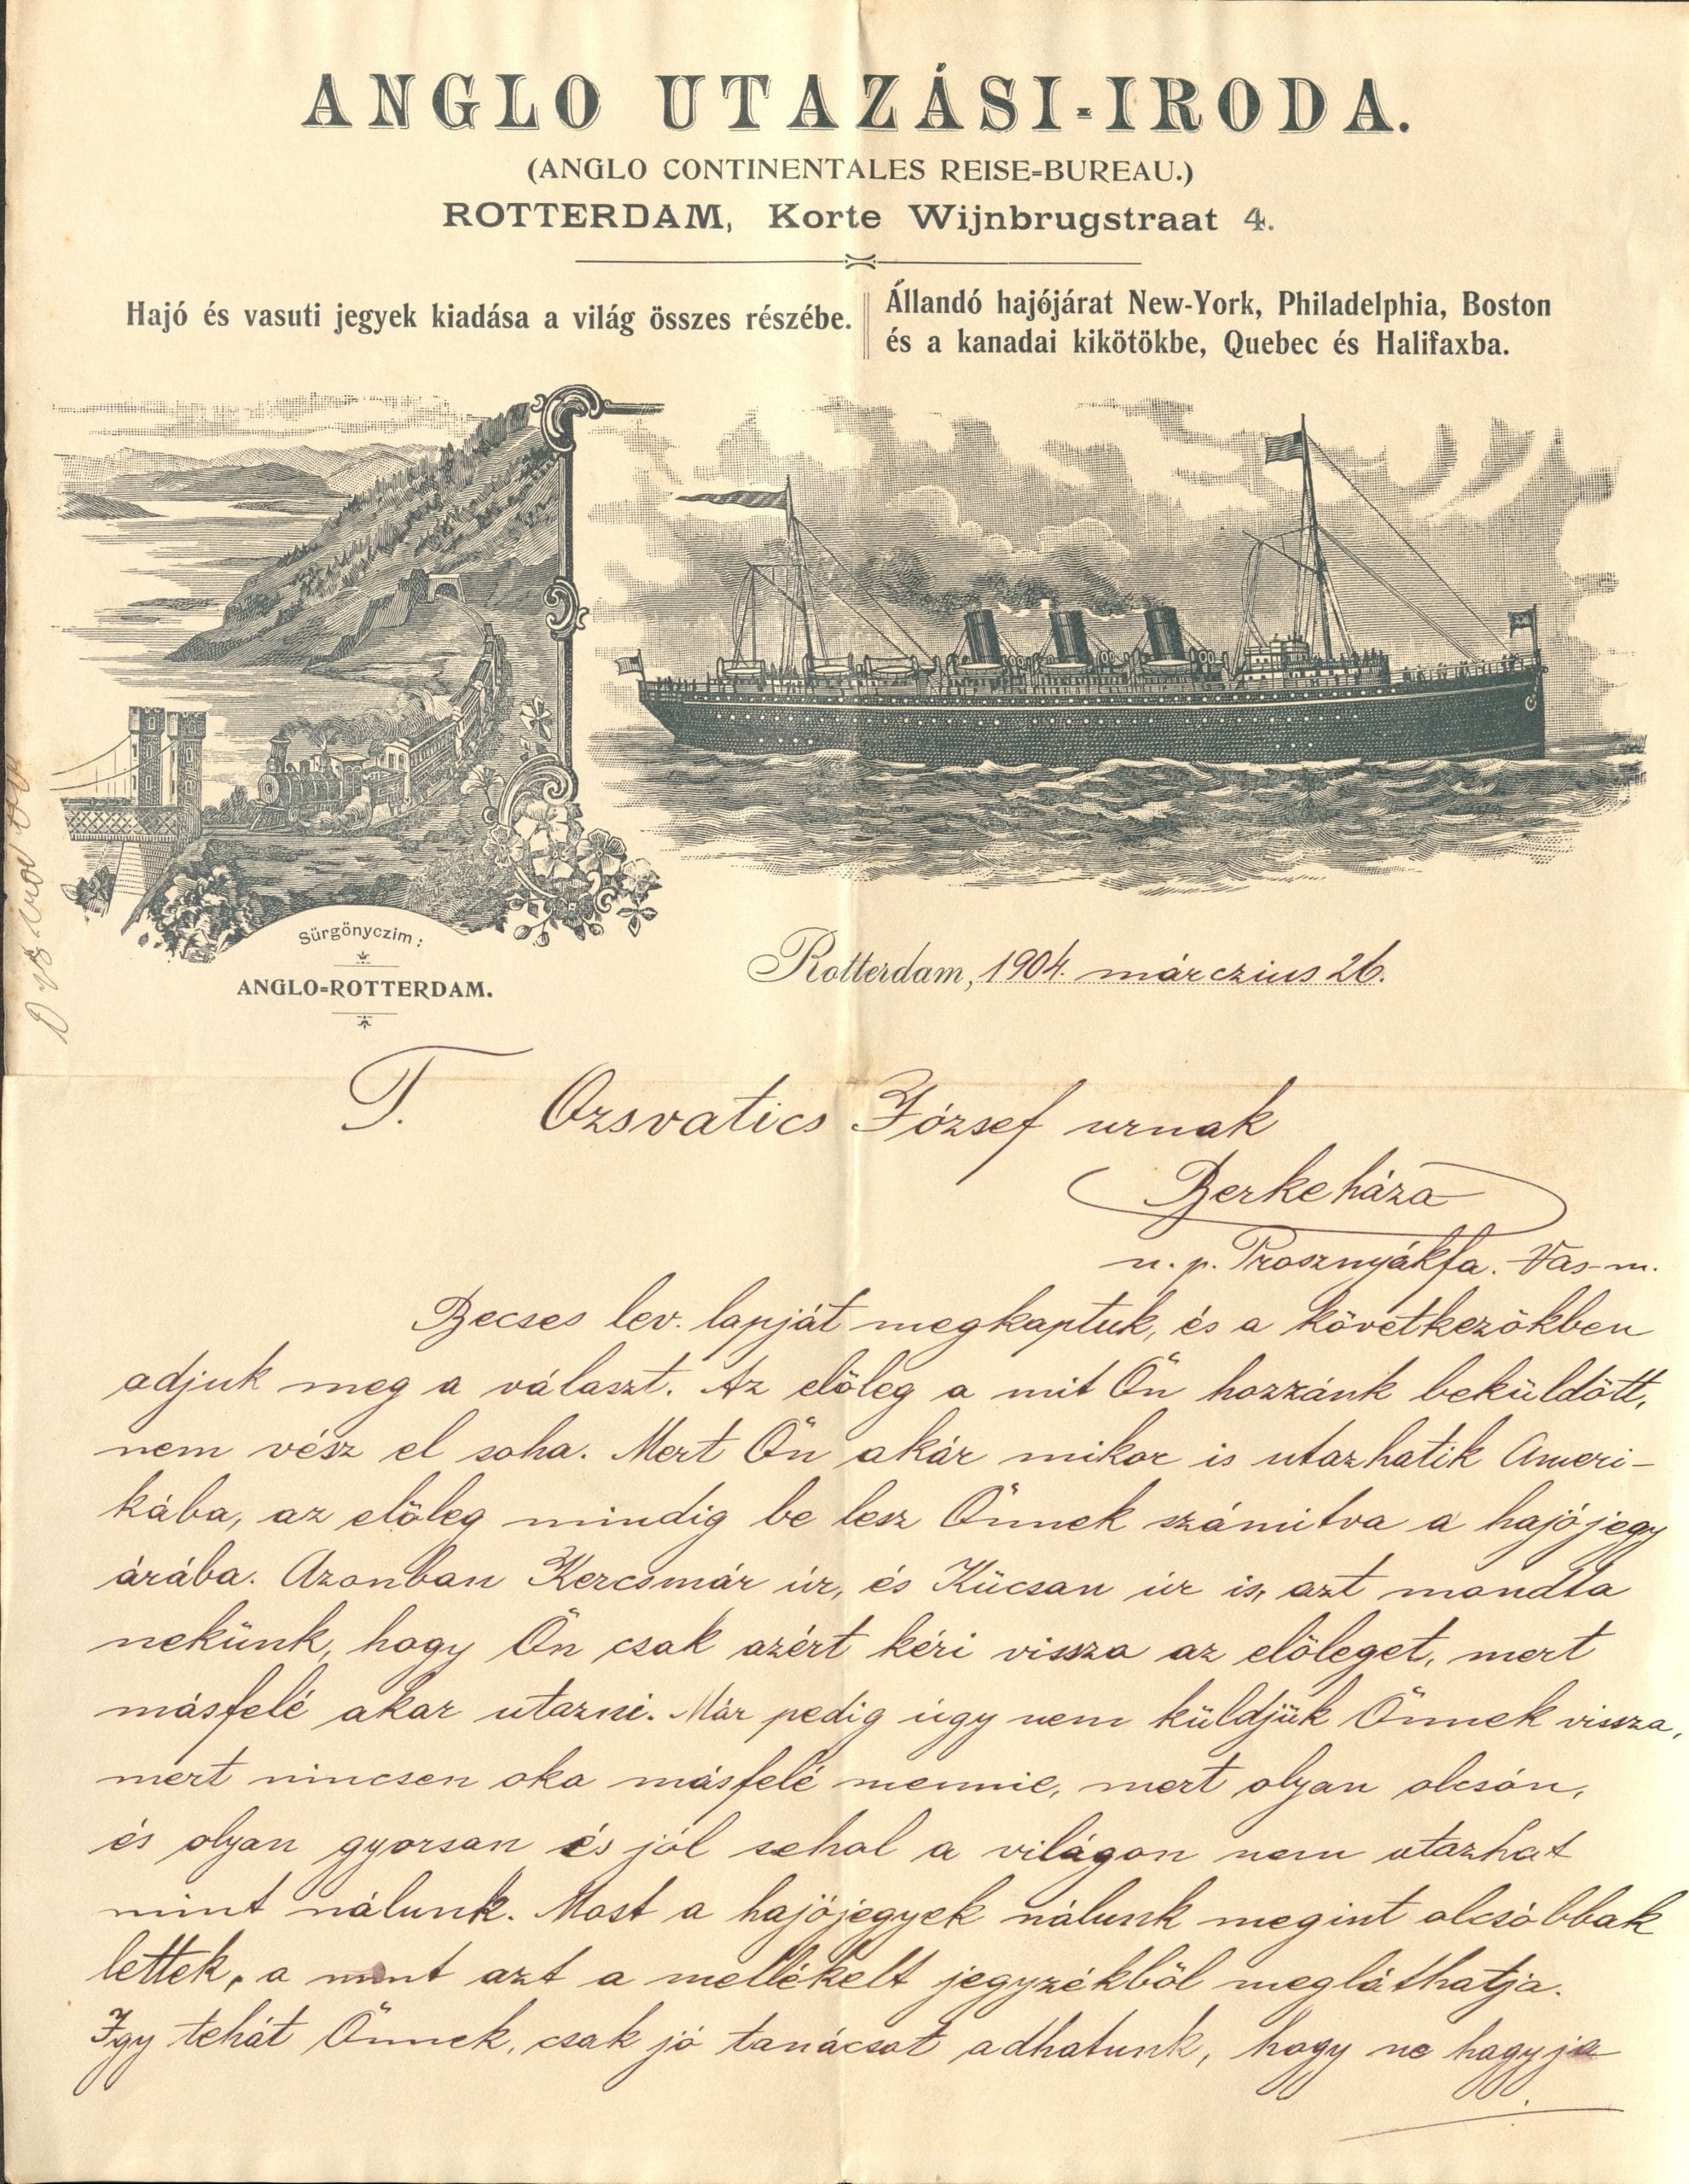 ANGLO UTAZÁSI-IRODA.
(ANGLO CONTINENTALES REISE-BUREAU.)
ROTTERDAM, Korte Wijnbrugstraat 4.
Hajó és vasuti jegyek kiadása a világ összes részébe.
Állandó hajójárat New-York, Philadelphia, Boston
és a kanadai kikötökbe, Quebec és Halifaxba.
Sürgönyczim:
ANGLO-ROTTERDAM.
Rotterdam, 1904. márczius 26.
T. Ozsvatics József urnak
Berkeháza
u. p. Prosznyákfa. Vas-m.
Becses lev. lapját megkaptuk, és a következökben
adjuk meg a választ. Az elöleg a mit Ön hozzánk beküldött,
nem vész el soha. Mert Ön akár mikor is utazhatik Ameri-
kába, az elöleg mindig be lesz Önnek számitva a hajójegy
árába. Azonban Kercsmár úr, és Kücsan úr is, azt mondta
nekünk, hogy Ön csak azért kéri vissza az elöleget, mert
másfelé akar utazni. Már pedig úgy nem küldjük Önnek vissza,
mert nincsen oka másfelé mennie, mert olyan olcsón,
és olyan gyorsan és jól sehol a világon nem utazhat
mint nálunk. Most a hajójegyek nálunk megint olcsóbbak
lettek, a mint azt a mellékelt jegyzékböl megláthatja.
Igy tehát Önnek, csak jó tanácsot adhatunk, hogy ne hagyja